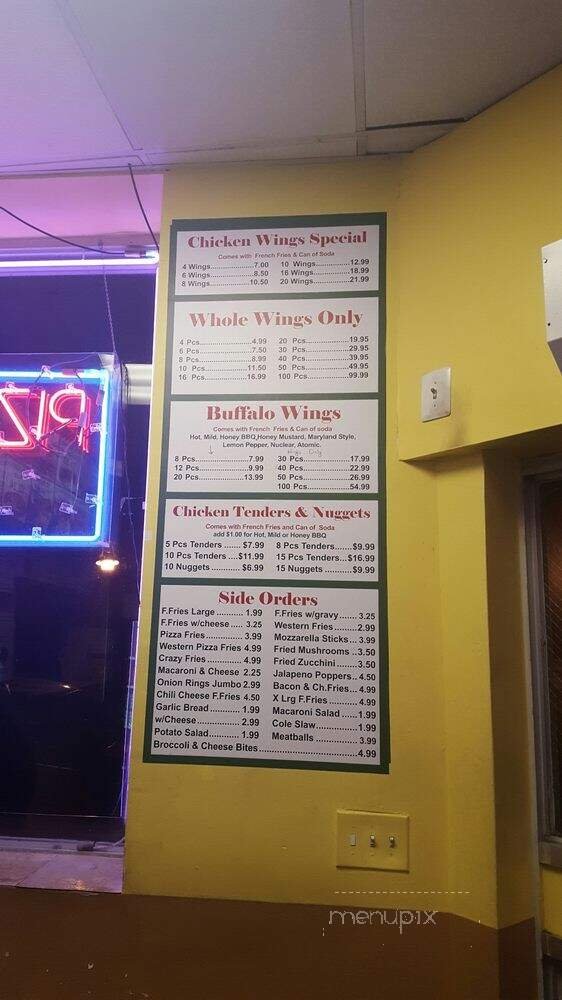 Chicken Wings Special
Comes with French Fries & Can of Soda
4 Wings....................7.00 10 Wings...............12.99
6 Wings....................8.50 16 Wings...............18.99
8 Wings...................10.50 20 Wings...............21.99
Whole Wings Only
4 Pcs.......................4.99 20 Pcs...................19.95
6 Pcs.......................7.50 30 Pcs...................29.95
8 Pcs.......................8.99 40 Pcs...................39.95
10 Pcs....................11.50 50 Pcs...................49.95
16 Pcs....................16.99 100 Pcs..................99.99
Buffalo Wings
Comes with French Fries & Can of soda
Hot, Mild, Honey BBQ,Honey Mustard, Maryland Style,
Lemon Pepper, Nuclear, Atomic.
8 Pcs.......................7.99 30 Pcs...................17.99
12 Pcs......................9.99 40 Pcs...................22.99
20 Pcs.....................13.99 50 Pcs...................26.99
100 Pcs..................54.99
Chicken Tenders & Nuggets
Comes with French Fries and Can of Soda
add $1.00 for Hot, Mild or Honey BBQ
5 Pcs Tenders ....... $7.99 8 Pcs Tenders.......$9.99
10 Pcs Tenders ....$11.99 15 Pcs Tenders...$16.99
10 Nuggets ............ $6.99 15 Nuggets ...........$9.99
Side Orders
F.Fries Large .......... 1.99 F.Fries w/gravy ....... 3.25
F.Fries w/cheese ..... 3.25 Western Fries.........2.99
Pizza Fries............... 3.99 Mozzarella Sticks... 3.99
Western Pizza Fries 4.99 Fried Mushrooms ..3.50
Crazy Fries .............. 4.99 Fried Zucchini ........3.50
Macaroni & Cheese 2.25 Jalapeno Poppers.. 4.50
Onion Rings Jumbo 2.99 Bacon & Ch.Fries... 4.99
Chili Cheese F.Fries 4.50 X Lrg F.Fries ..........4.99
Garlic Bread ............. 1.99 Macaroni Salad ......1.99
w/Cheese ................. 2.99 Cole Slaw...............1.99
Potato Salad............. 1.99 Meatballs ............... 3.99
Broccoli & Cheese Bites...................................4.99
menupix